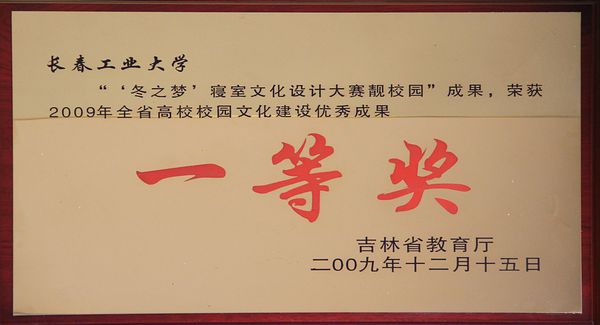 长春工业大学
“‘冬之梦’寝室文化设计大赛靓校园”成果，荣获
2009年全省高校校园文化建设优秀成果
一等奖
吉林省教育厅
二00九年十二月十五日